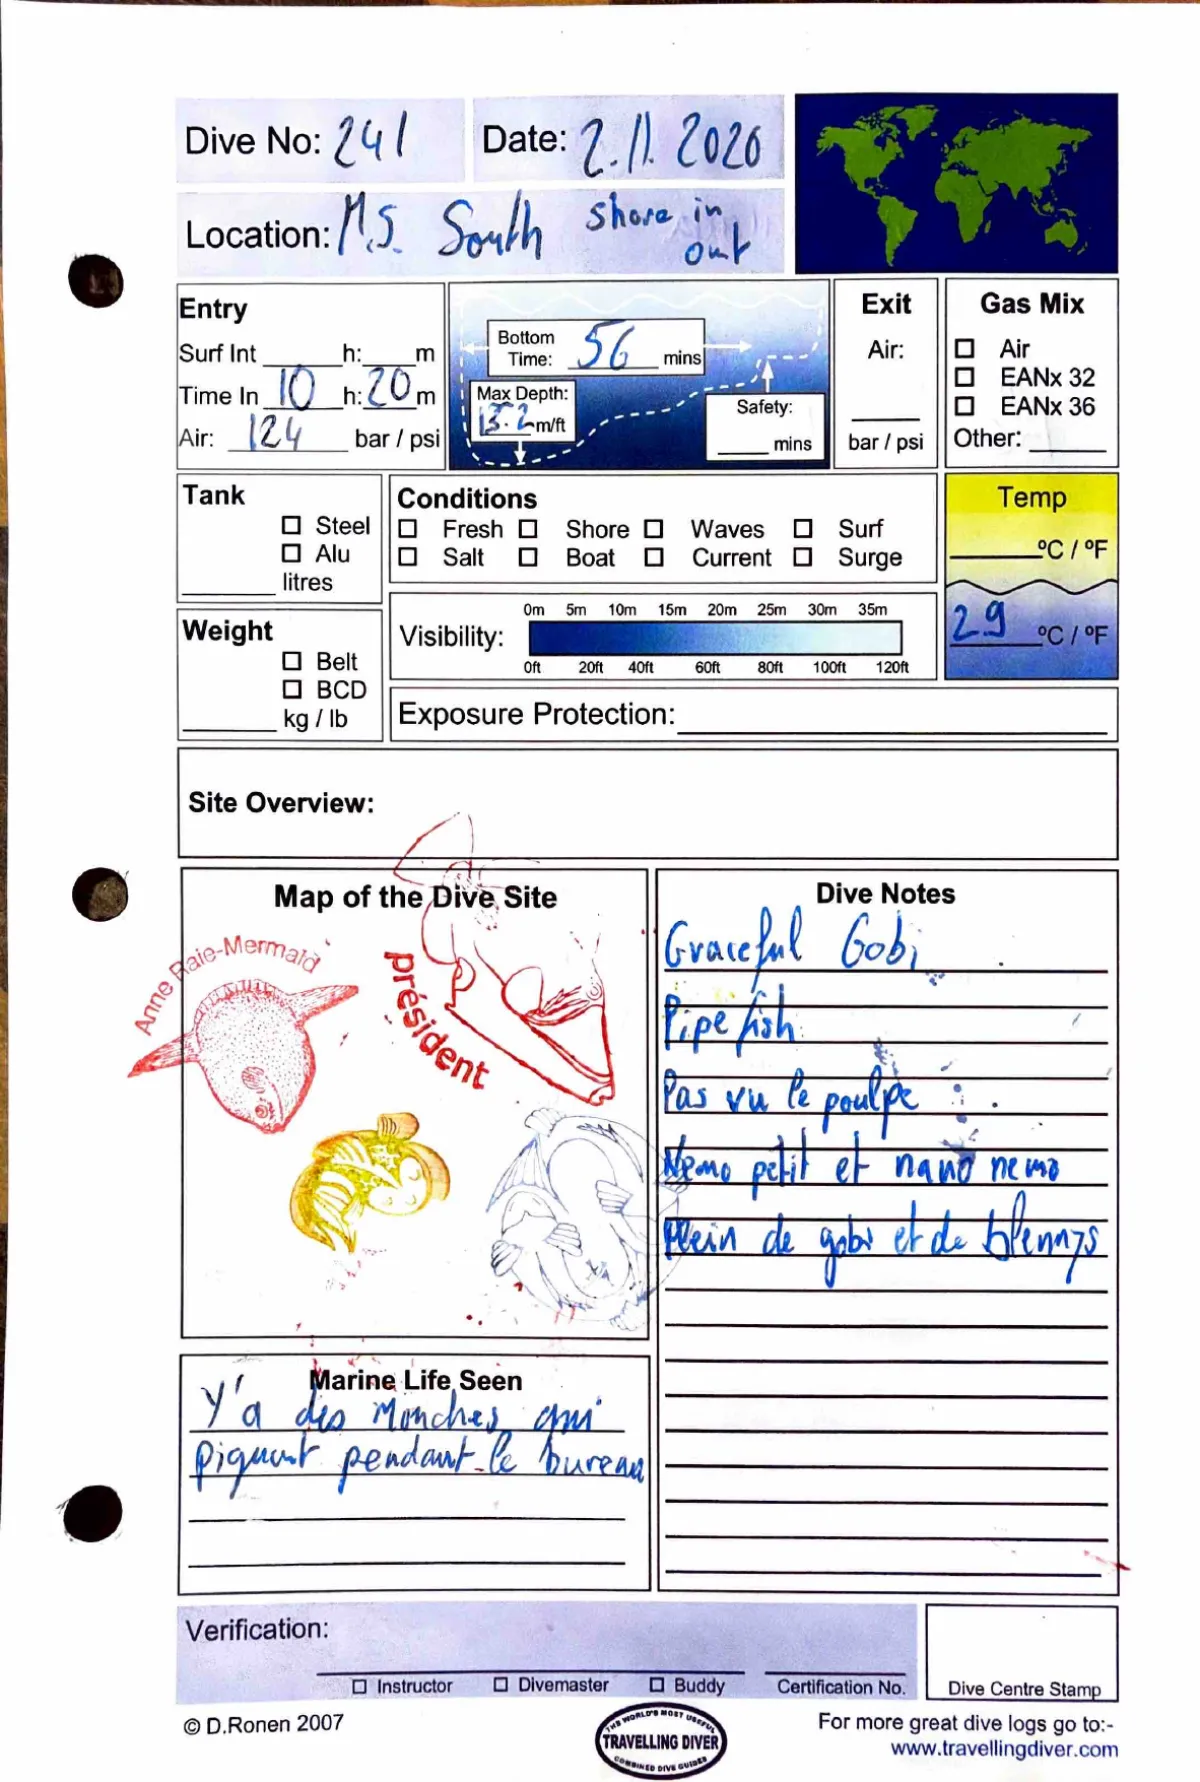 Dive No: 241
Date: 2.11.2020
Location: M.S. South shore in
out
Entry
Surf Int ____ h: ____ m
Time In 10 h: 20 m
Air: 124 bar / psi
Bottom
Time: 56 mins
Max Depth:
13.2 m/ft
Safety:
____ mins
Exit
Air:
bar / psi
Gas Mix
Air
EANx 32
EANx 36
Other: ____
Tank
Steel
Alu
____ litres
Conditions
Fresh Shore Waves Surf
Salt Boat Current Surge
Temp
____ ºC / ºF
29 ºC / ºF
Weight
Belt
BCD
____ kg / lb
Visibility:
0m 5m 10m 15m 20m 25m 30m 35m
0ft 20ft 40ft 60ft 80ft 100ft 120ft
Exposure Protection:
Site Overview:
Map of the Dive Site
Anne Raie-Mermaid
président
Dive Notes
Graceful Gobi
Pipe fish
Pas vu le poulpe
Nemo petit et nano nemo
Plein de gobi et de blennys
Marine Life Seen
Y'a des mouches qui
piquent pendant le bureau
Verification:
Instructor Divemaster Buddy Certification No.
Dive Centre Stamp
© D.Ronen 2007
THE WORLD'S MOST USEFUL
TRAVELLING DIVER
COMBINED DIVE GUIDES
For more great dive logs go to:-
www.travellingdiver.com